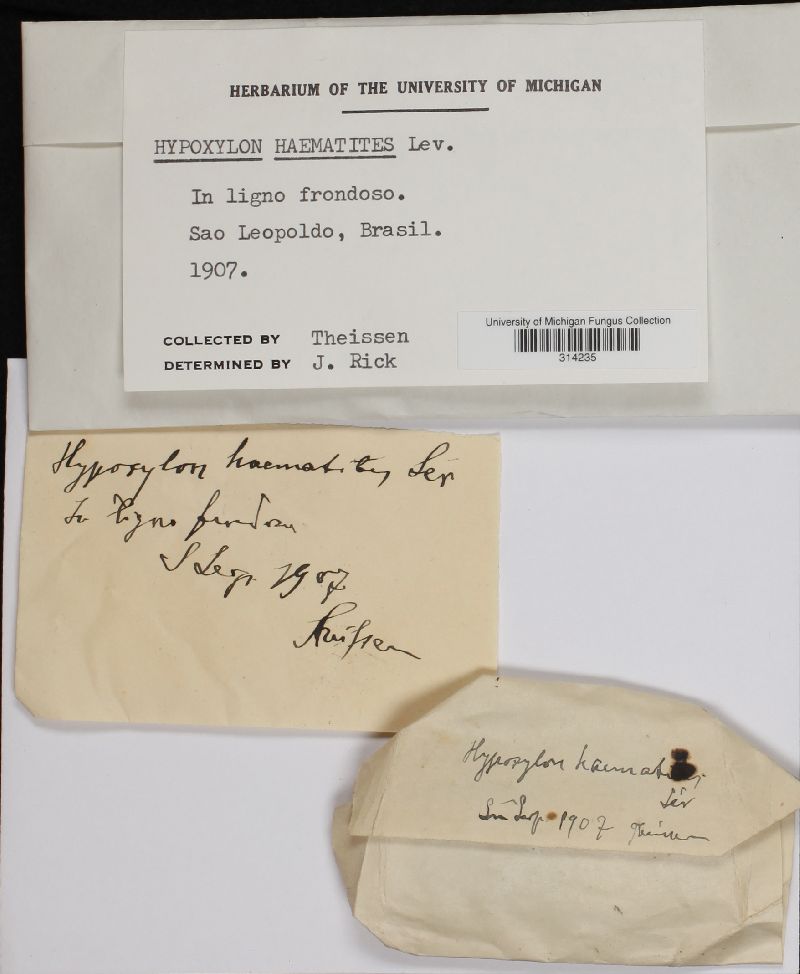 HERBARIUM OF THE UNIVERSITY OF MICHIGAN
HYPOXYLON HAEMATITES Lev.
In ligno frondoso.
Sao Leopoldo, Brasil.
1907.
COLLECTED BY Theissen
DETERMINED BY J. Rick
University of Michigan Fungus Collection
314235
Hypoxylon haematites Lév
In ligno frondoso
S Leop. 1907
Theissen
Hypoxylon haematites
Lév
Leop. 1907 Theissen